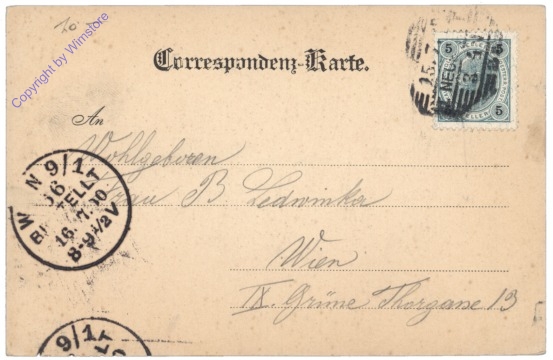 Copyright by Wimstore
Correspondenz-Karte.
5 5
5
An
Wohlgeboren
Frau B Ledwinka
Wien
IX. Grüne Thorgasse 13
WIEN 9/1
66
BESTELLT
16.7.00
8-9½V
9/1